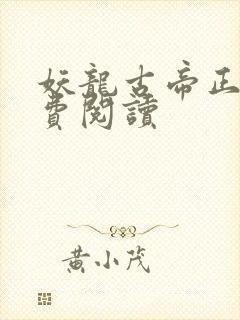 妖龍古帝正
費閱讀
黄小茂